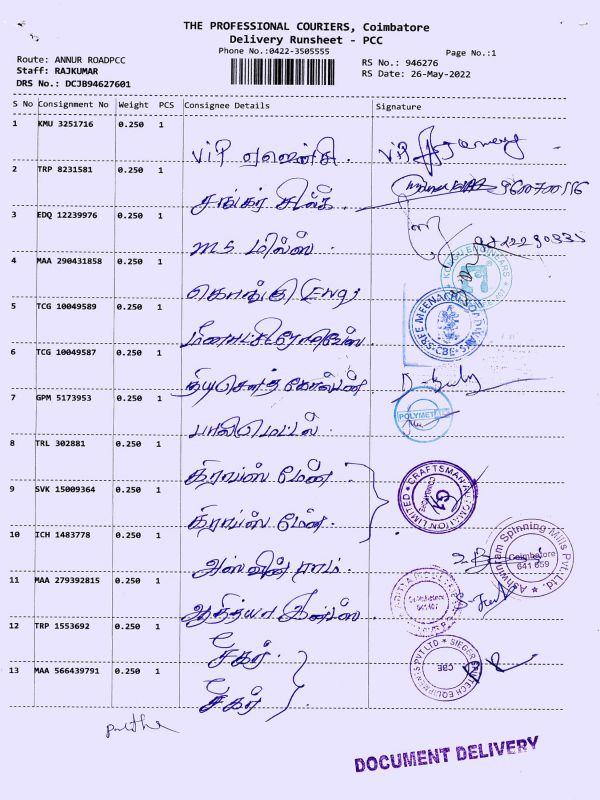 THE PROFESSIONAL COURIERS, Coimbatore
Delivery Runsheet - PCC
Phone No.:0422-3505555
Page No.:1
Route: ANNUR ROADPCC
RS No.: 946276
Staff: RAJKUMAR
RS Date: 26-May-2022
DRS No.: DCJB94627601
S No Consignment No Weight PCS Consignee Details Signature
1 KMU 3251716 0.250 1
ViP ஏஜென்சி. ViP
2 TRP 8231581 0.250 1
சங்கர் சில்க்.
3 EDQ 12239976 0.250 1
M.S மில்ஸ்
4 MAA 290431858 0.250 1
கொங்கு Eng
5 TCG 10049589 0.250 1
6 TCG 10049587 0.250 1
7 GPM 5173953 1
POLYMET
பாலிமெட்டல்
8 TRL 302881 0.250 1
கிராப்ஸ் மேன்
9 SVK 15009364 0.250 1
கிராப்ஸ் மேன்.
CRAFTSMAN
LIMITED
10 ICH 1483778 0.250 1
அஸ்வின் ராம்
Ashwinram Spinning Mills Pvt. Ltd
Coimbatore
641 659
11 MAA 279392815 0.250 1
ஆதித்யா
12 TRP 1553692 0.250 1
சீகர்.
SIEGER
CBE
13 MAA 566439791 0.250 1
சீகர்
DOCUMENT DELIVERY